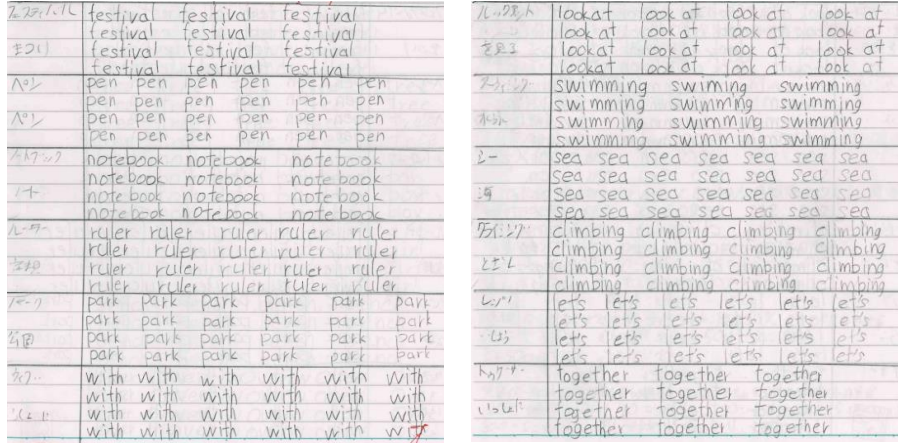 festival festival festival
festival festival festival
まつり festival festival festival
festival festival festival
ペン pen pen pen pen pen pen
pen pen pen pen pen pen
ペン pen pen pen pen pen pen
pen pen pen pen pen pen
notebook notebook notebook
notebook notebook notebook
ノート notebook notebook notebook
notebook notebook notebook
ルーラー ruler ruler ruler ruler ruler
ruler ruler ruler ruler ruler
ruler ruler ruler ruler ruler
ruler ruler ruler ruler ruler
パーク park park park park park park
park park park park park park
公園 park park park park park park
park park park park park park
with with with with with with
with with with with with with
with with with with with with
with with with with with with
look at look at look at look at
look at look at look at look at
を見る look at look at look at look at
look at look at look at look at
swimming swiming swimming
swimming swimming swimming
swimming swimming swimming
swimming swimming swimming
シー sea sea sea sea sea sea sea
sea sea sea sea sea sea sea
海 sea sea sea sea sea sea sea
sea sea sea sea sea sea sea
クライミング climbing climbing climbing climbing
climbing climbing climbing climbing
climbing climbing climbing climbing
climbing climbing climbing climbing
レッツ let's let's let's let's let's let's
let's let's let's let's let's let's
let's let's let's let's let's let's
let's let's let's let's let's let's
トゥゲザー together together together
together together together
いっしょに together together together
together together together